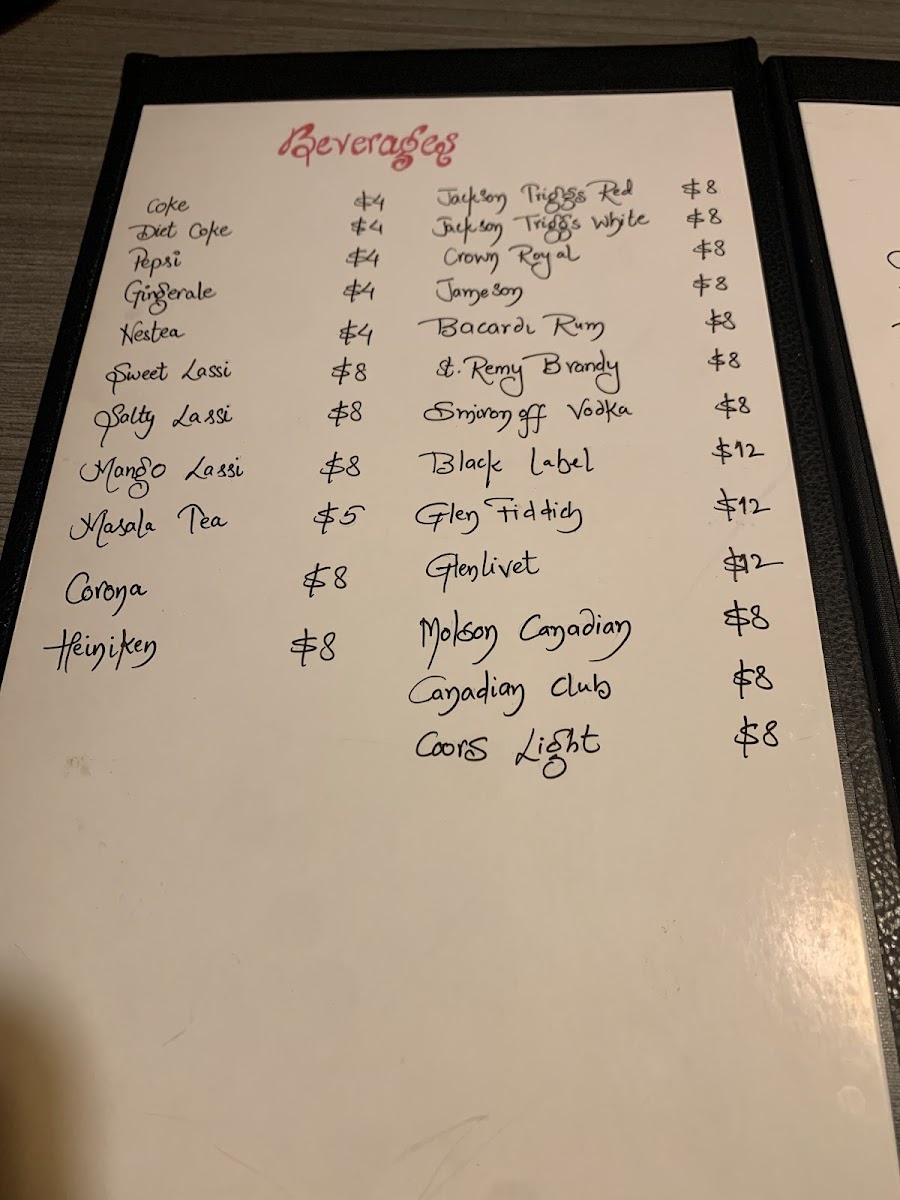 Beverages
Coke $4
Diet Coke $4
Pepsi $4
Gingerale $4
Nestea $4
Sweet Lassi $8
Salty Lassi $8
Mango Lassi $8
Masala Tea $5
Corona $8
Heiniken $8
Jackson Triggs Red $8
Jackson Triggs White $8
Crown Royal $8
Jameson $8
Bacardi Rum $8
St. Remy Brandy $8
Smivonoff Vodka $8
Black Label $12
Glen Fiddich $12
Glenlivet $12
Molson Canadian $8
Canadian Club $8
Coors Light $8